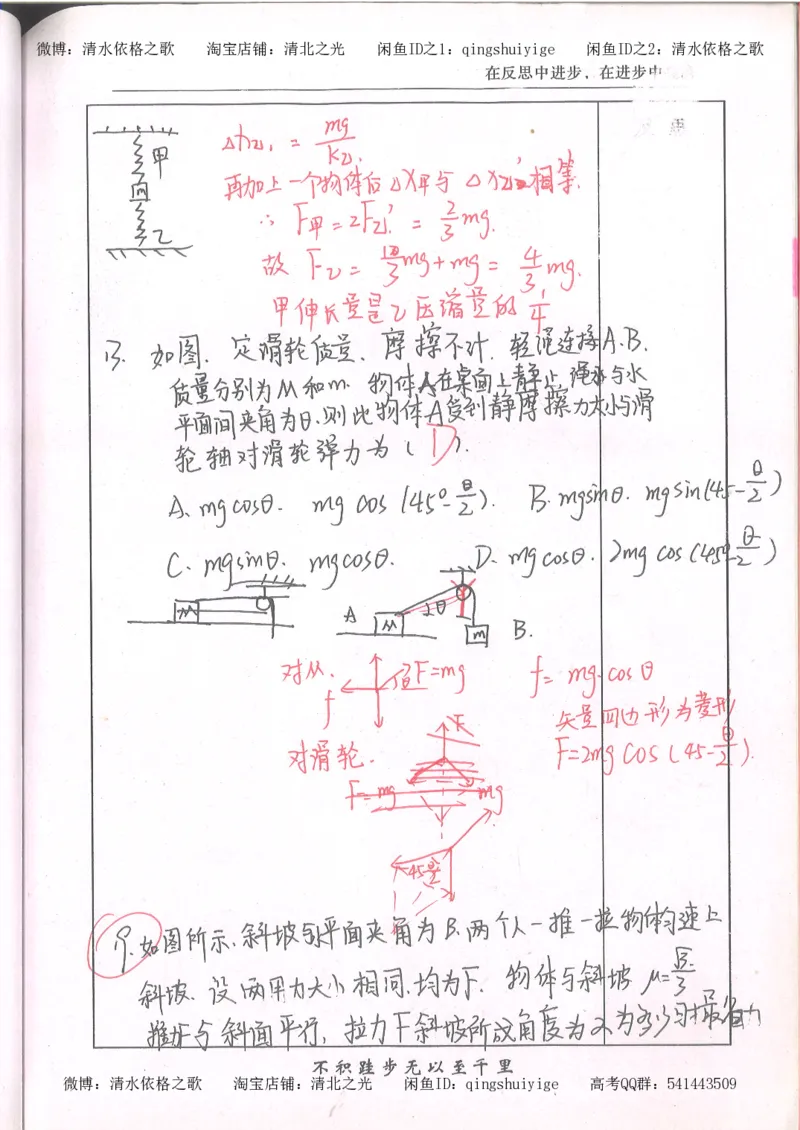 微博：清水依格之歌 淘宝店铺：清北之光 闲鱼ID之1：qingshuiyige 闲鱼ID之2：清水依格之歌
在反思中进步，在进步中
甲
m
乙
Δh乙₁ = mg/k乙.
再加上一个物体后 Δx甲与 Δx乙' 相等.
∴ F甲 = 2F乙' = 2/3 mg.
mg + mg = 4/3 mg.
甲伸长量是乙压缩量的 1/4
13. 如图. 定滑轮质量、摩擦不计. 轻绳连接A.B.
质量分别为M和m. 物体A在桌面上静止, 绳 与水
平面间夹角为θ.则此物体A受到静摩擦力大小与滑
轮轴对滑轮弹力为 ( D ).
A、mgcosθ. mg cos (45°-θ/2). B. mgsinθ. mgsin(45-θ/2)
C、mgsinθ、 mgcosθ. D、mgcosθ. 2mg cos(45°-θ/2)
M
A M θ m B.
对M. f F=mg f= mg·cosθ
矢量四边形为菱形
对滑轮. F F=2mg cos (45-θ/2).
F=mg mg
如图所示.斜坡与平面夹角为B.两个人一推一拉物体匀速上
斜坡. 设两用力大小相同.均为F. 物体与斜坡 μ=√3/3
推力F与斜面平行, 拉力F斜坡所成角度为α为多少时最省力
不积跬步无以至千里
微博：清水依格之歌 淘宝店铺：清北之光 闲鱼ID：qingshuiyige 高考QQ群：541443509